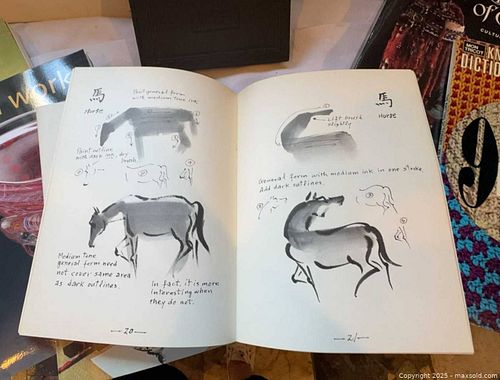 馬
Horse
Paint general form
with medium tone ink
Paint outline
with dark ink, dry
brush.
Medium tone
general form need
not cover same area
as dark outlines.
In fact, it is more
interesting when
they do not.
20
馬
Horse
Lift brush
slightly
General form with medium ink in one stroke.
Add dark outlines.
21
work
of
CULTU
MON
TRICOT
DICTI
9
Copyright 2025 - maxsold.com